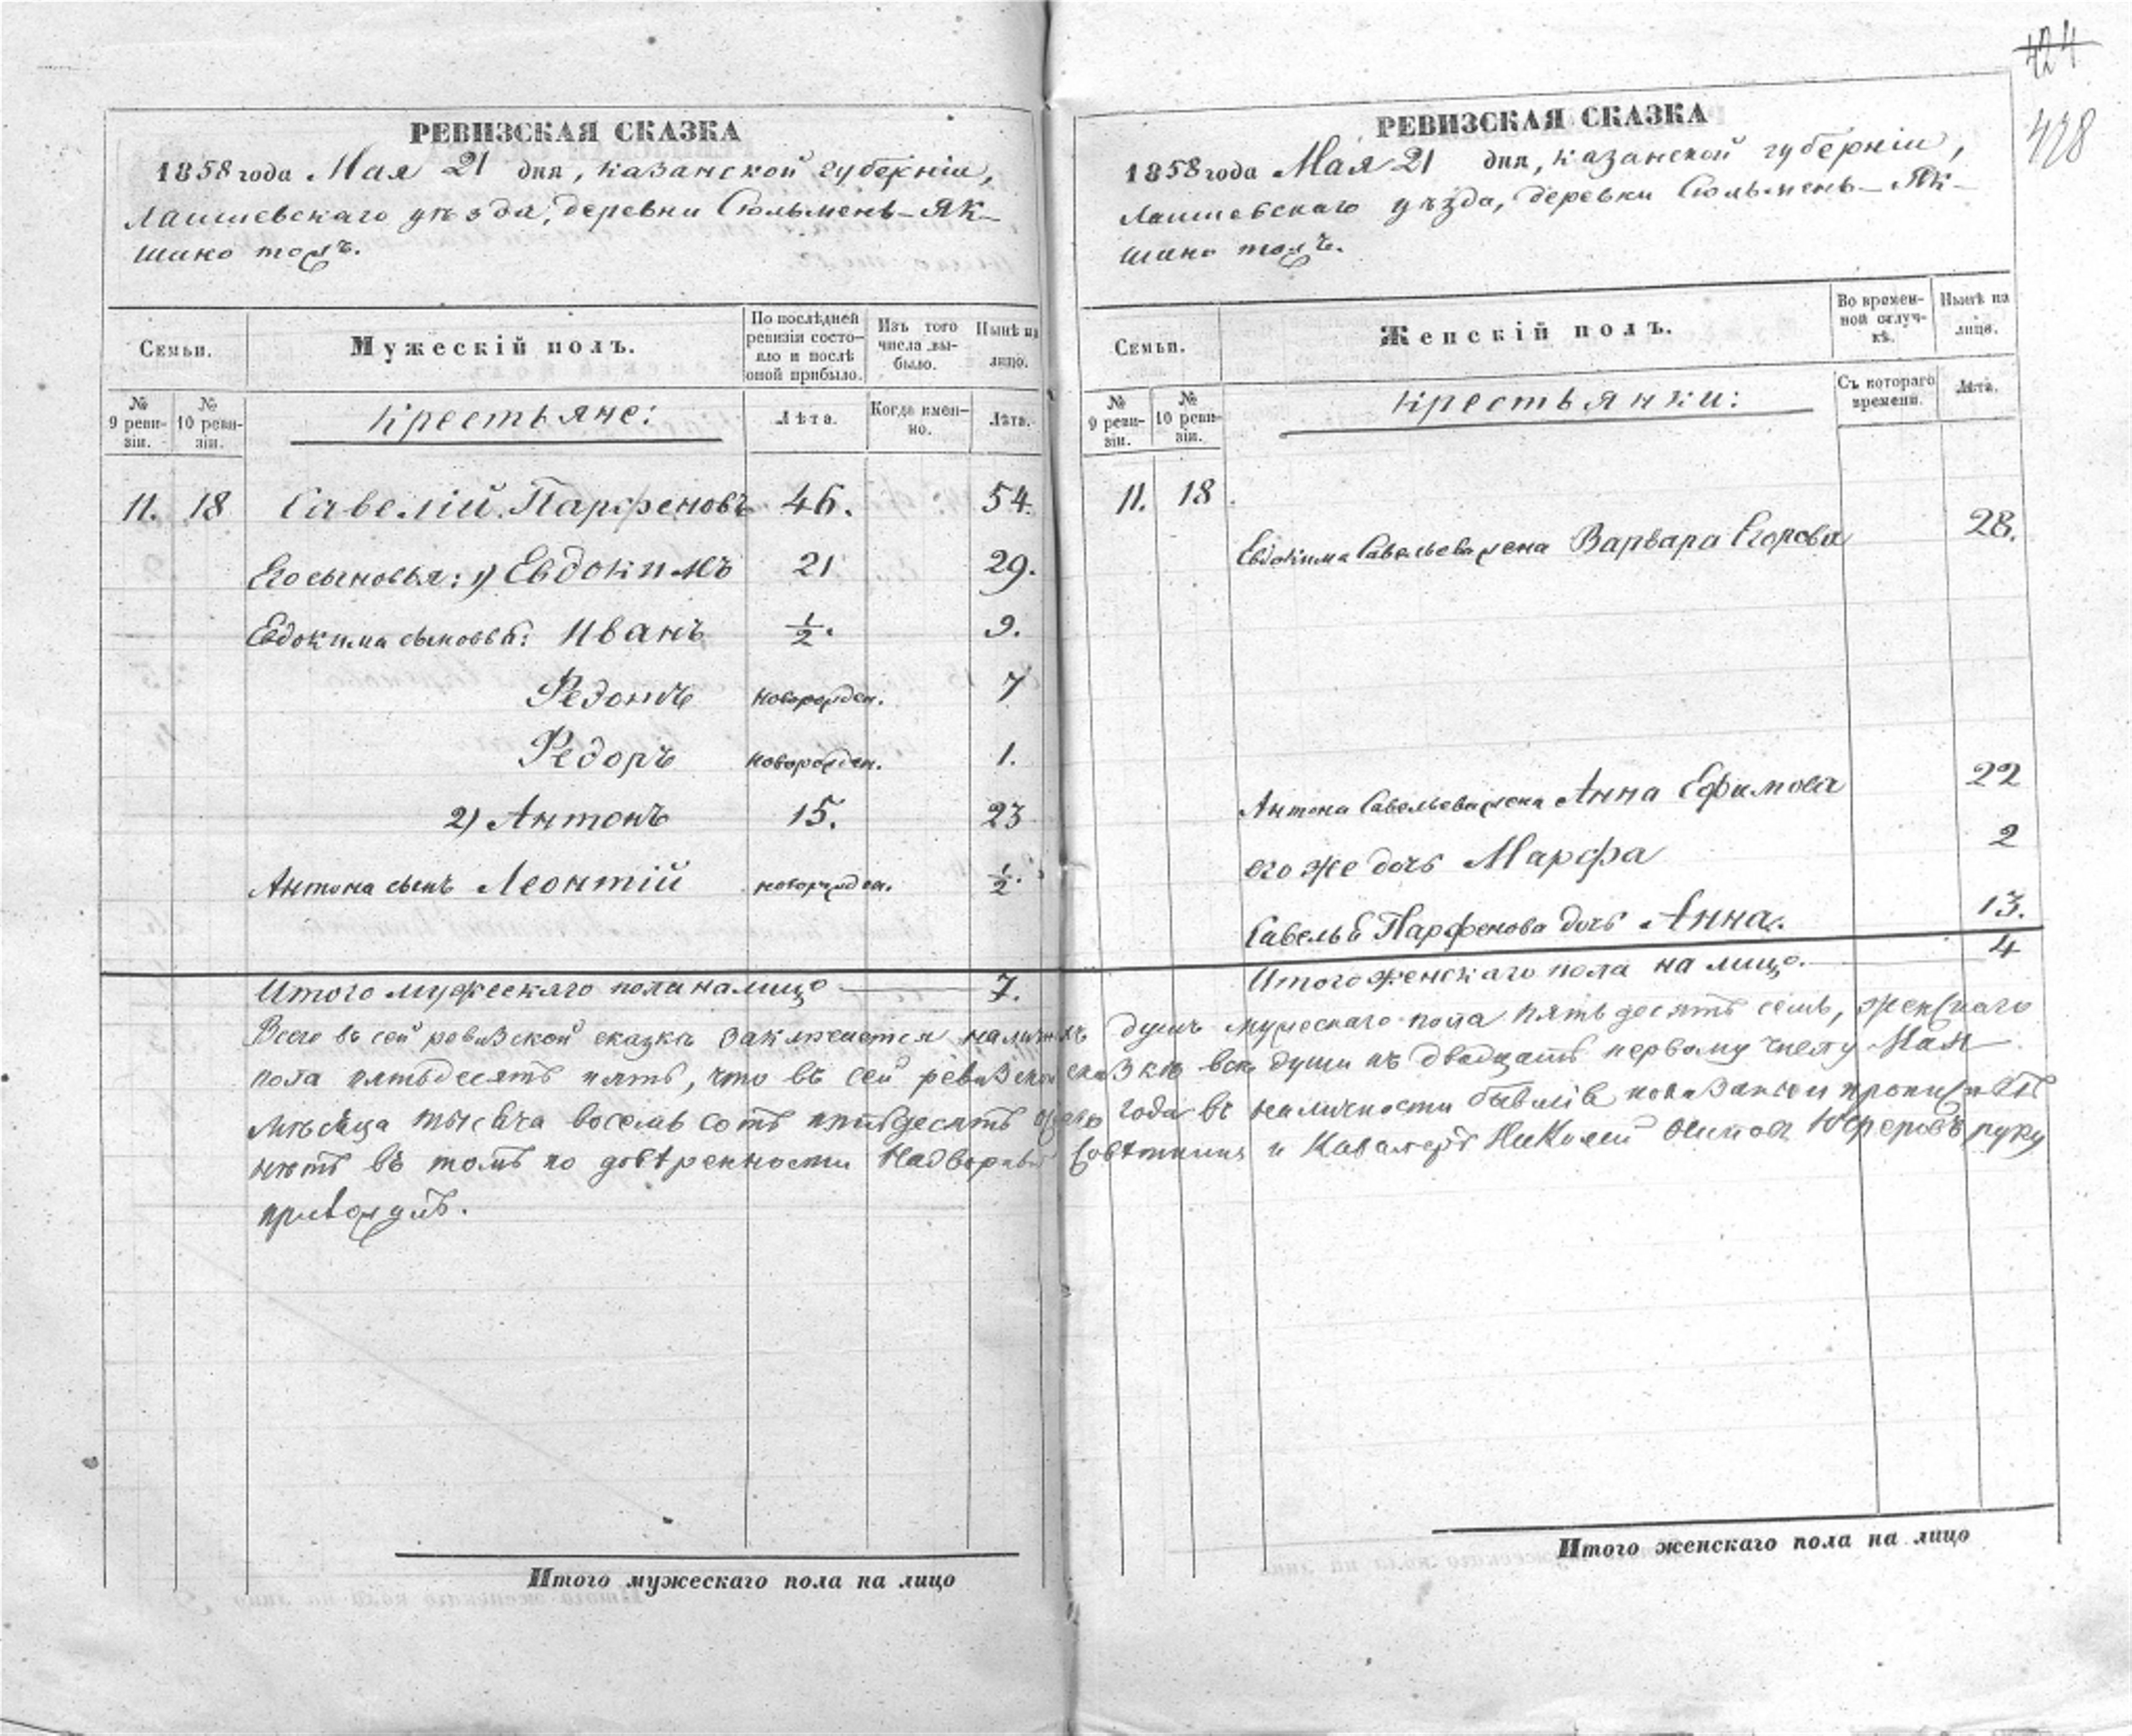 424
428
РЕВИЗСКАЯ СКАЗКА
1858 года Мая 21 дня, Казанской губерніи,
Лаишевскаго уѣзда, деревни Сюльмень-Як-
шино тожъ.
Семьи.
Мужескій полъ.
По послѣдней ревизіи состояло и послѣ оной прибыло.
Изъ того числа выбыло.
Нынѣ на лицо.
№ 9 ревизіи.
№ 10 ревизіи.
Крестьяне:
Лѣта.
Когда именно.
Лѣта.
11. 18 Савелій Парфеновъ 46. 54.
Его сыновья: 1) Евдокимъ 21 29.
Евдокима сыновья: Иванъ ½. 9.
Федотъ новорожден. 7
Федоръ новорожден. 1.
2) Антонъ 15. 23
Антона сынъ Леонтій новорожден. ½.
Итого мужескаго пола на лицо 7.
РЕВИЗСКАЯ СКАЗКА
1858 года Мая 21 дня, Казанской губерніи,
Лаишевскаго уѣзда, деревни Сюльмень-Як-
шино тожъ.
Семьи.
Женскій полъ.
Во временной отлучкѣ.
Нынѣ на лицо.
№ 9 ревизіи.
№ 10 ревизіи.
Крестьянки:
Съ котораго времени.
Лѣта.
11. 18.
Евдокима Савельева жена Варвара Егорова 28.
Антона Савельева жена Анна Ефимова 22
его же дочь Марфа 2
Савелья Парфенова дочь Анна. 13.
Итого женскаго пола на лицо. 4
Всего въ сей ревизской сказкѣ заключается наличныхъ душъ мужескаго пола пятьдесятъ семь, женскаго
пола пятьдесятъ пять, что въ сей ревизской сказкѣ все души къ двадцать первому числу Мая
мѣсяца тысяча восемь сотъ пятьдесятъ года въ наличности бывшія показаны и прописныхъ
нѣтъ въ томъ по довѣренности Надворнаго Совѣтника и Кавалера Николай Осипов руку
приложилъ.
Итого мужескаго пола на лицо
Итого женскаго пола на лицо